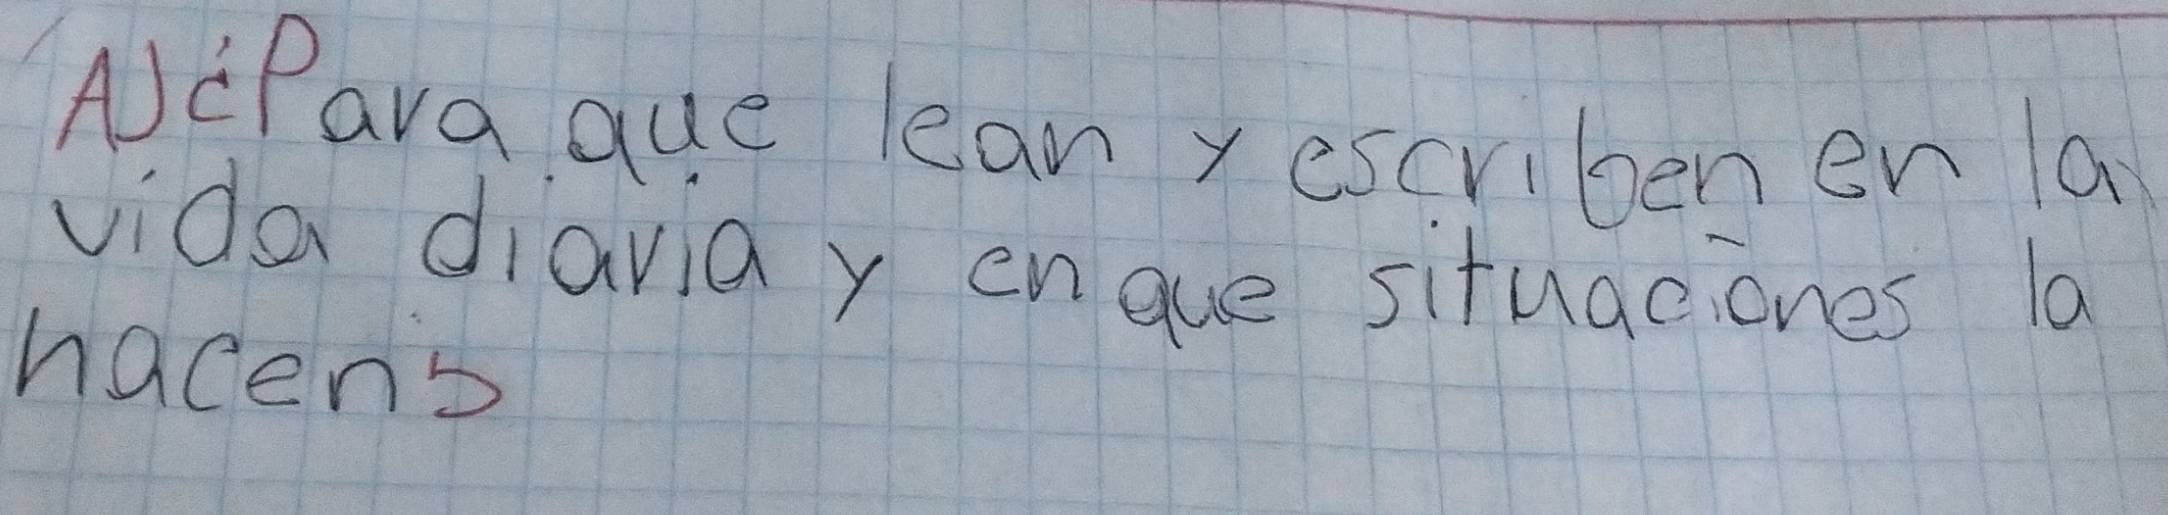 A) ¿Para que lean y escriben en la
vida diaria y en que situaciones la
hacen?